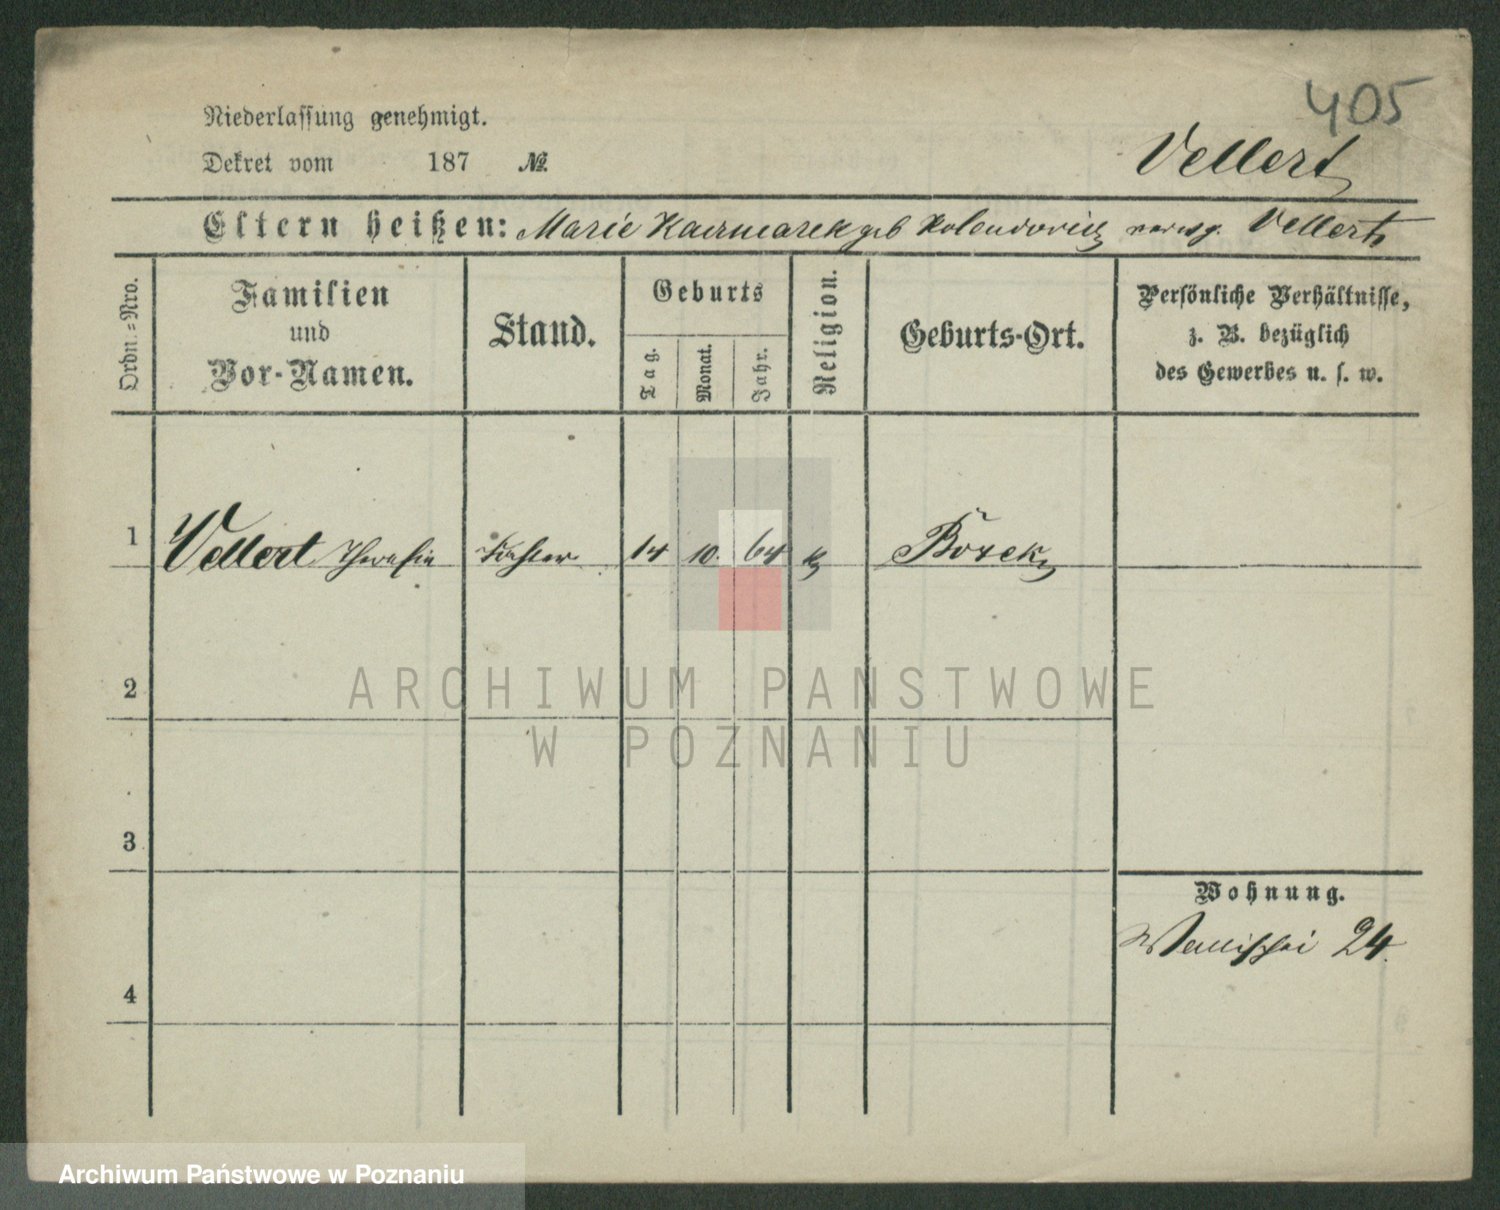 405
Niederlassung genehmigt.
Dekret vom 187 №.
Vellert
Eltern heißen: Marie Kaczmarek geb verwg. Vellert
Ordn.=Nro.
Familien
und
Vor-Namen.
Stand.
Geburts
Tag.
Monat.
Jahr.
Religion.
Geburts-Ort.
Persönliche Verhältnisse,
z. B. bezüglich
des Gewerbes u. s. w.
1 Vellert Theresia Tochter 14 10. 64 k Borek
2
3
4
Wohnung.
Wallischei 24.
ARCHIWUM PANSTWOWE
W POZNANIU
Archiwum Państwowe w Poznaniu